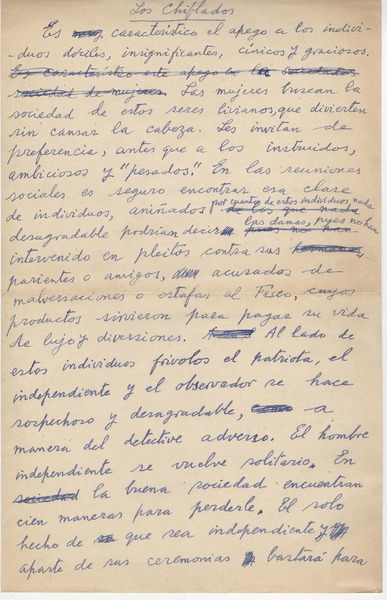 Los Chiflados
Es muy característico el apego a los indivi-
-duos dóciles, insignificantes, cínicos y graciosos.
Es característico este apego en la sociedades
sociedad de mujeres. Las mujeres buscan la
sociedad de estos seres livianos, que divierten
sin cansar la cabeza. Les invitan de
preferencia, antes que a los instruídos,
ambiciosos y "pesados." En las reuniones
sociales es seguro encontrar esa clase
de individuos, aniñados, por cuanto de estos individuos, nada
desagradable podrían decir las damas, pues no han
intervenido en pleitos contra sus
parientes o amigos, acusados de
malversaciones o estafas al Fisco, cuyos
productos sirvieron para pagar su vida
de lujo y diversiones. Al lado de
estos individuos frívolos el patriota, el
independiente y el observador se hace
sospechoso y desagradable, a
manera del detective adverso. El hombre
independiente se vuelve solitario. En
sociedad la buena sociedad encuentran
cien maneras para perderle. El solo
hecho de que sea independiente y
aparte de sus ceremonias bastará para